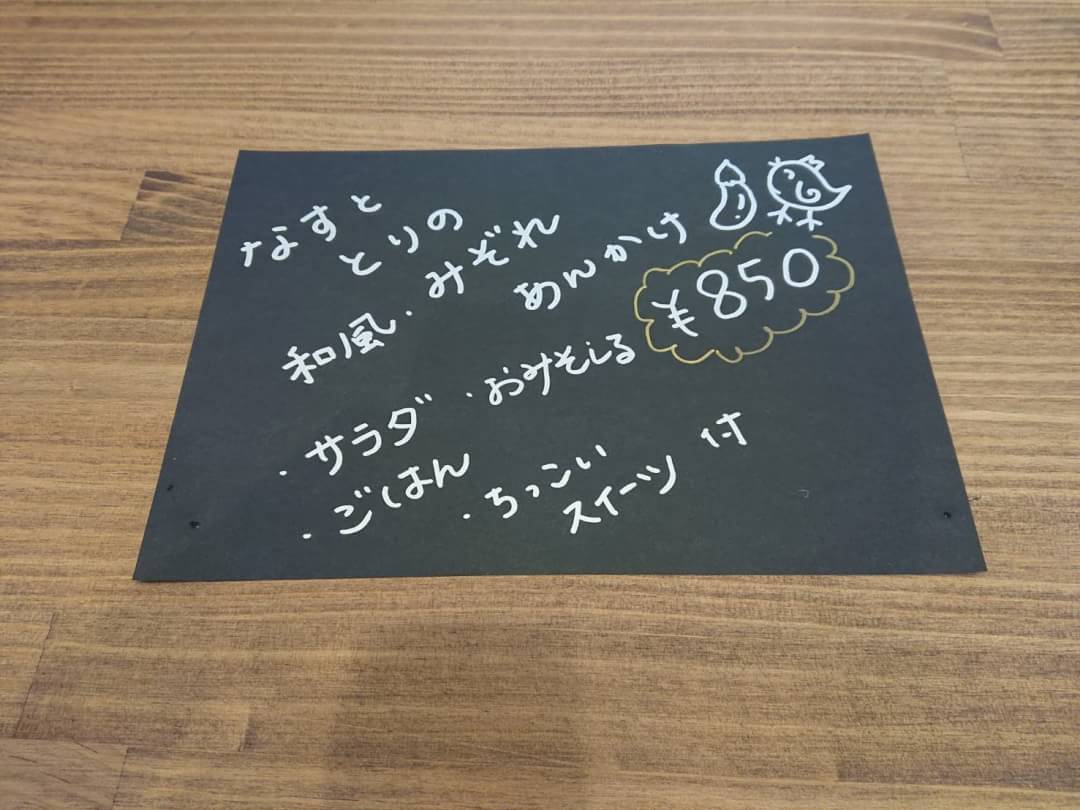 なすと
とりの
和風・みぞれ
あんかけ
¥850
・サラダ ・おみそしる
・ごはん ・ちっこい
スイーツ 付